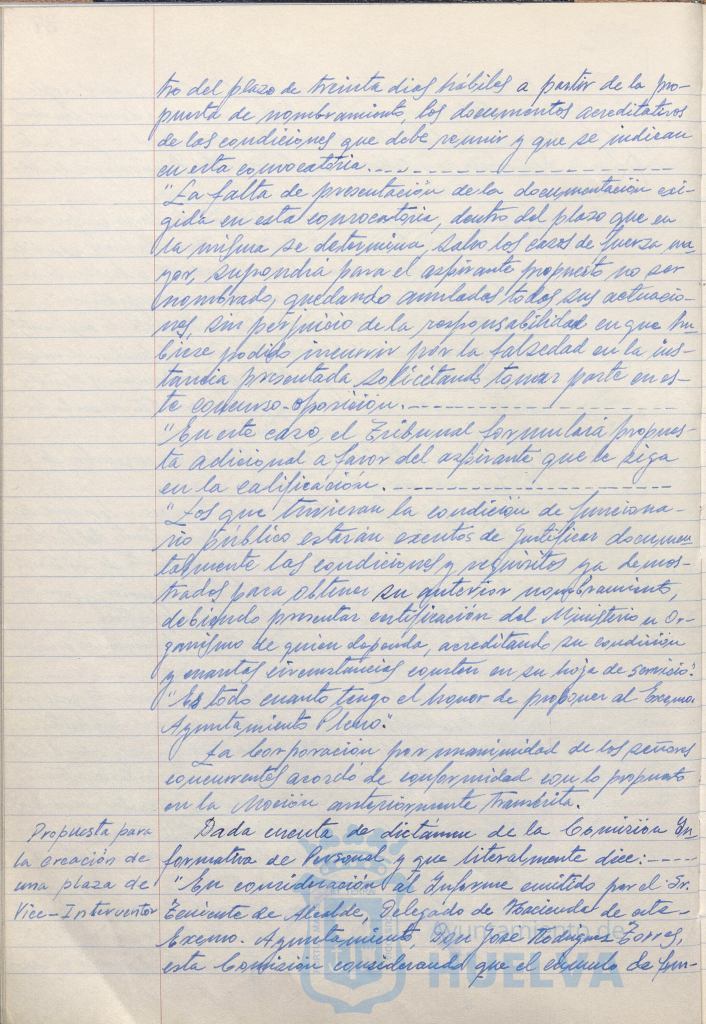 tro del plazo de treinta dias hábiles a partir de la pro-
puesta de nombramiento, los documentos acreditativos
de las condiciones que debe reunir y que se indican
en esta convocatoria.
"La falta de presentación de la documentación exi-
gida en esta convocatoria, dentro del plazo que en
la misma se determina, salvo los casos de fuerza ma-
yor, supondrá para el aspirante propuesto no ser
nombrado, quedando anuladas todas sus actuacio-
nes, sin perjuicio de la responsabilidad en que hu-
biese podido incurrir por la falsedad en la ins-
tancia presentada solicitando tomar parte en es-
te concurso-oposición.
"En este caso, el Tribunal formulará propues-
ta adicional a favor del aspirante que le siga
en la calificación.
"Los que tuvieran la condición de funciona-
rio público estarán exentos de justificar documen
talmente las condiciones y requisitos ya demos-
trados para obtener su anterior nombramiento,
debiendo presentar certificación del Ministerio u Or-
ganismo de quien dependa, acreditando su condición
y cuantas circunstancias consten en su hoja de servicio".
"Es todo cuanto tengo el honor de proponer al Excmo.
Ayuntamiento Pleno".
La Corporación por unanimidad de los señores
concurrentes acordó de conformidad con lo propuesto
en la Moción anteriormente transcrita.
Propuesta para
la creación de
una plaza de
Vice-Interventor
Dada cuenta de dictámen de la Comisión In-
formativa de Personal y que literalmente dice:
"En consideración al Informe emitido por el Sr.
Teniente de Alcalde, Delegado de Hacienda de este
Excmo. Ayuntamiento, Don José Rodríguez Torres,
esta Comisión considerando que el cúmulo de fun-
Ayuntamiento de
HUELVA